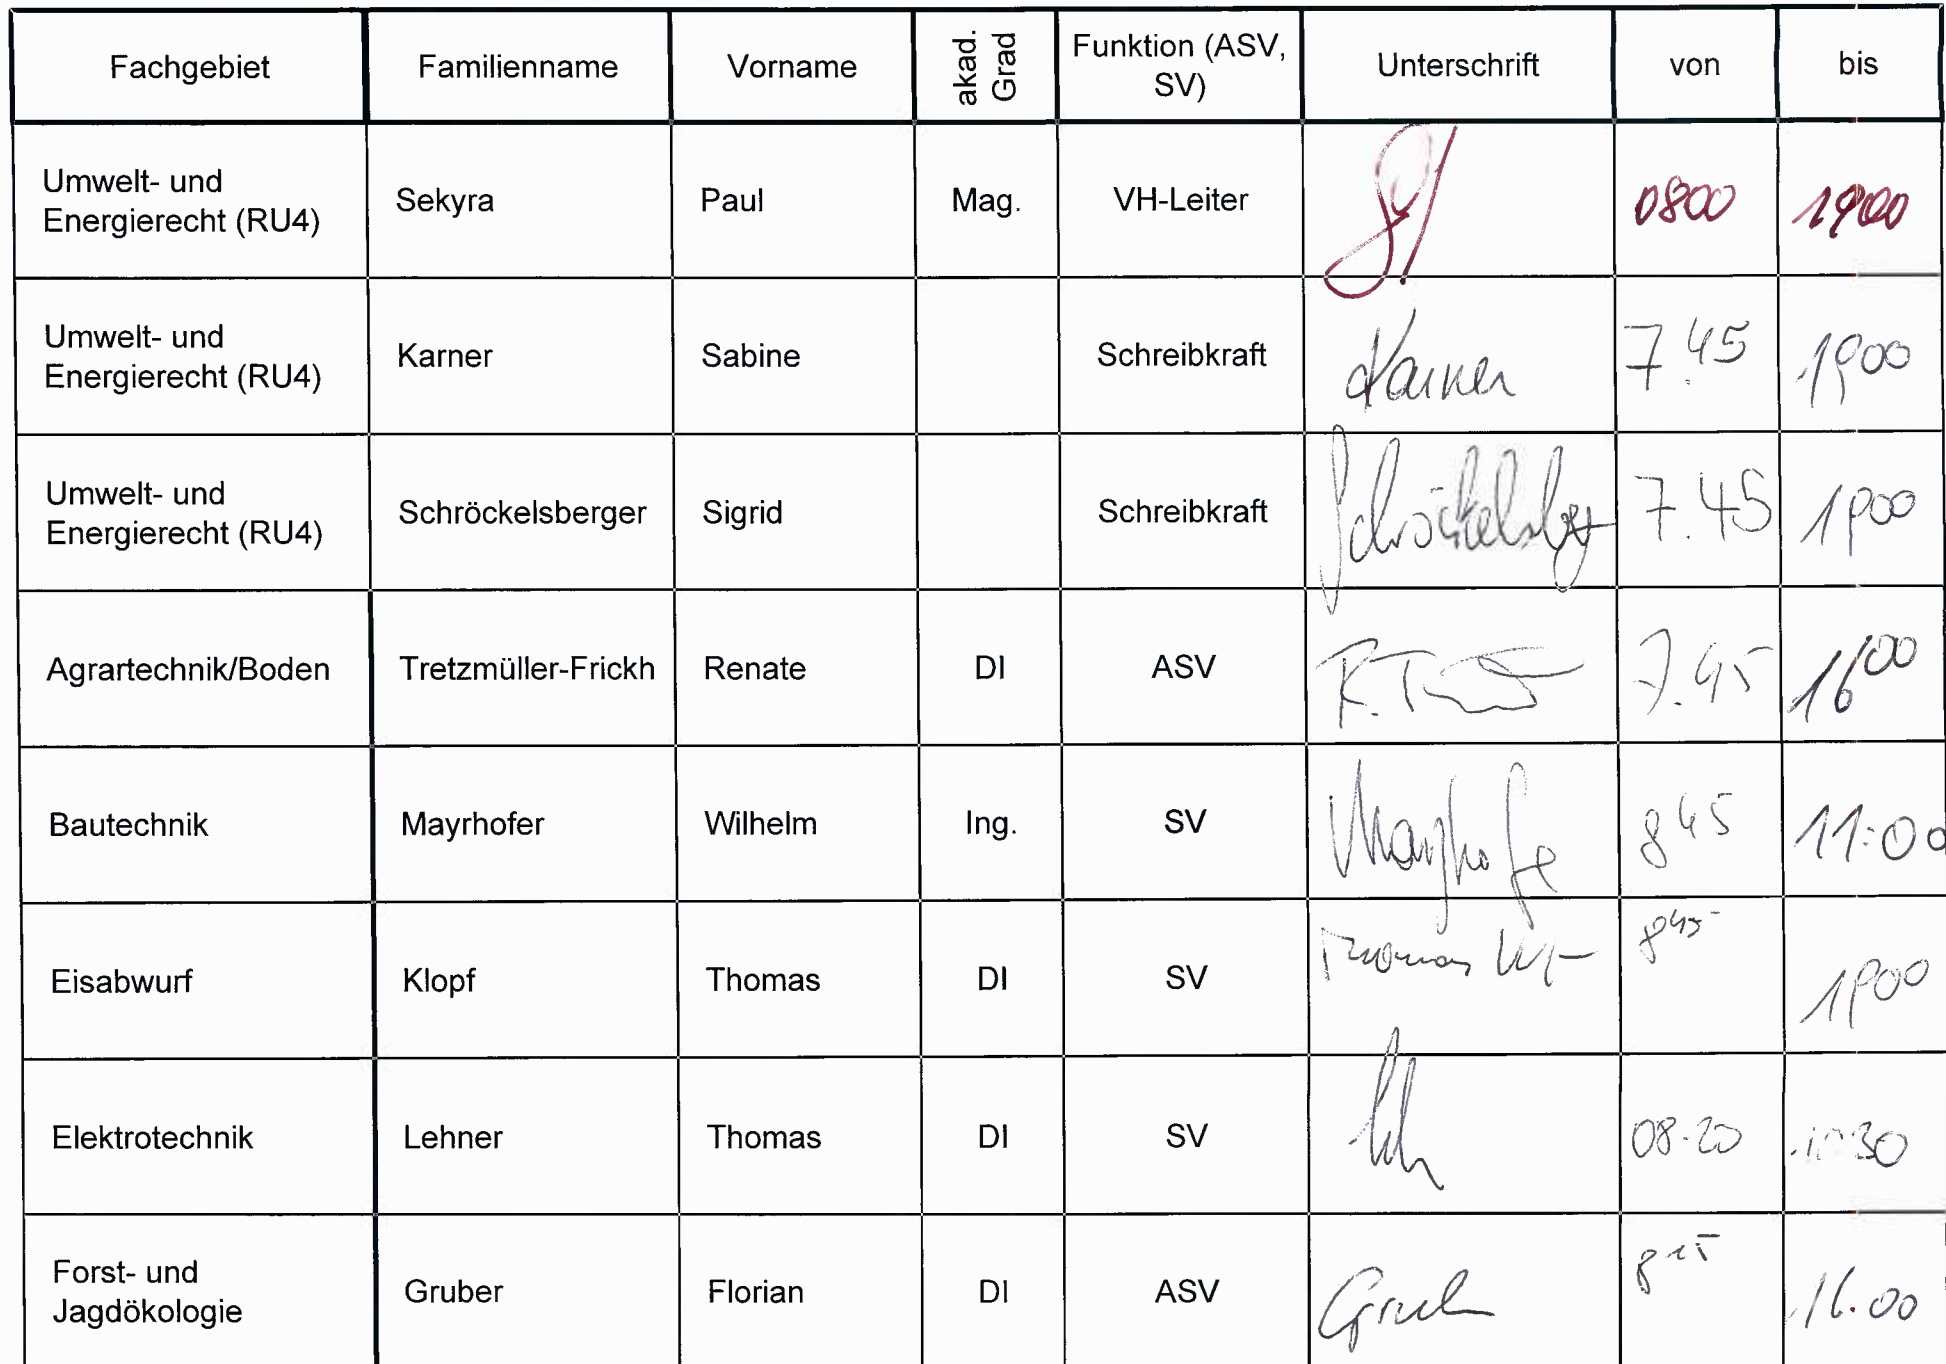 Fachgebiet Familienname Vorname akad. Grad Funktion (ASV, SV) Unterschrift von bis
Umwelt- und
Energierecht (RU4) Sekyra Paul Mag. VH-Leiter 0800
Umwelt- und
Energierecht (RU4) Karner Sabine Schreibkraft Karner 7.45
Umwelt- und
Energierecht (RU4) Schröckelsberger Sigrid Schreibkraft Schröckelsberger 7.45
Agrartechnik/Boden Tretzmüller-Frickh Renate DI ASV R.T 7.45 16 00
Bautechnik Mayrhofer Wilhelm Ing. SV Mayrhofer 8 45 11:00
Eisabwurf Klopf Thomas DI SV Thomas 8 45
Elektrotechnik Lehner Thomas DI SV 08.20
Forst- und
Jagdökologie Gruber Florian DI ASV Gruber 16.00